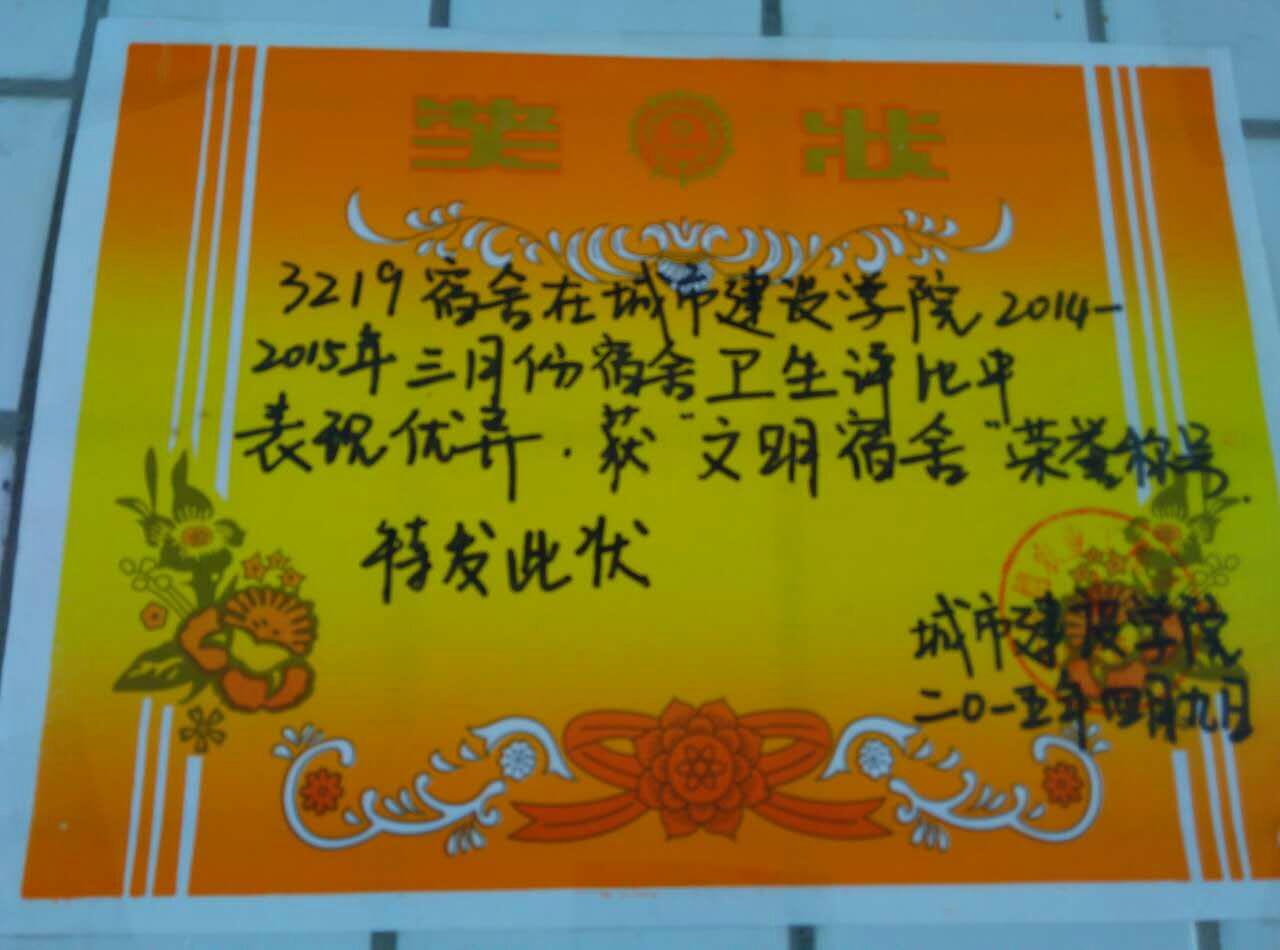 奖状
3219宿舍在城市建设学院2014-
2015年三月份宿舍卫生评比中
表现优异.获"文明宿舍"荣誉称号.
特发此状
城市建设学院
二〇一五年四月九日